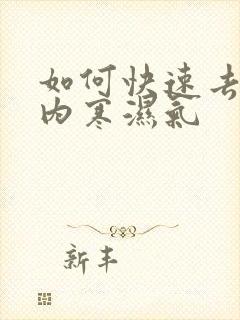 如何快速去
内寒濕氣
新丰